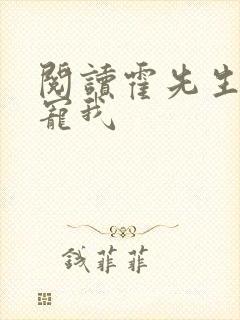 閱讀霍先生
寵我
錢菲菲